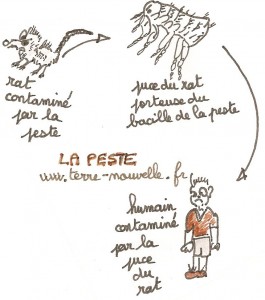 rat
contaminé
par la
peste
puce du rat
porteuse du
bacille de la peste
LA PESTE
www.terre-nouvelle.fr
humain
contaminé
par la
puce
du
rat